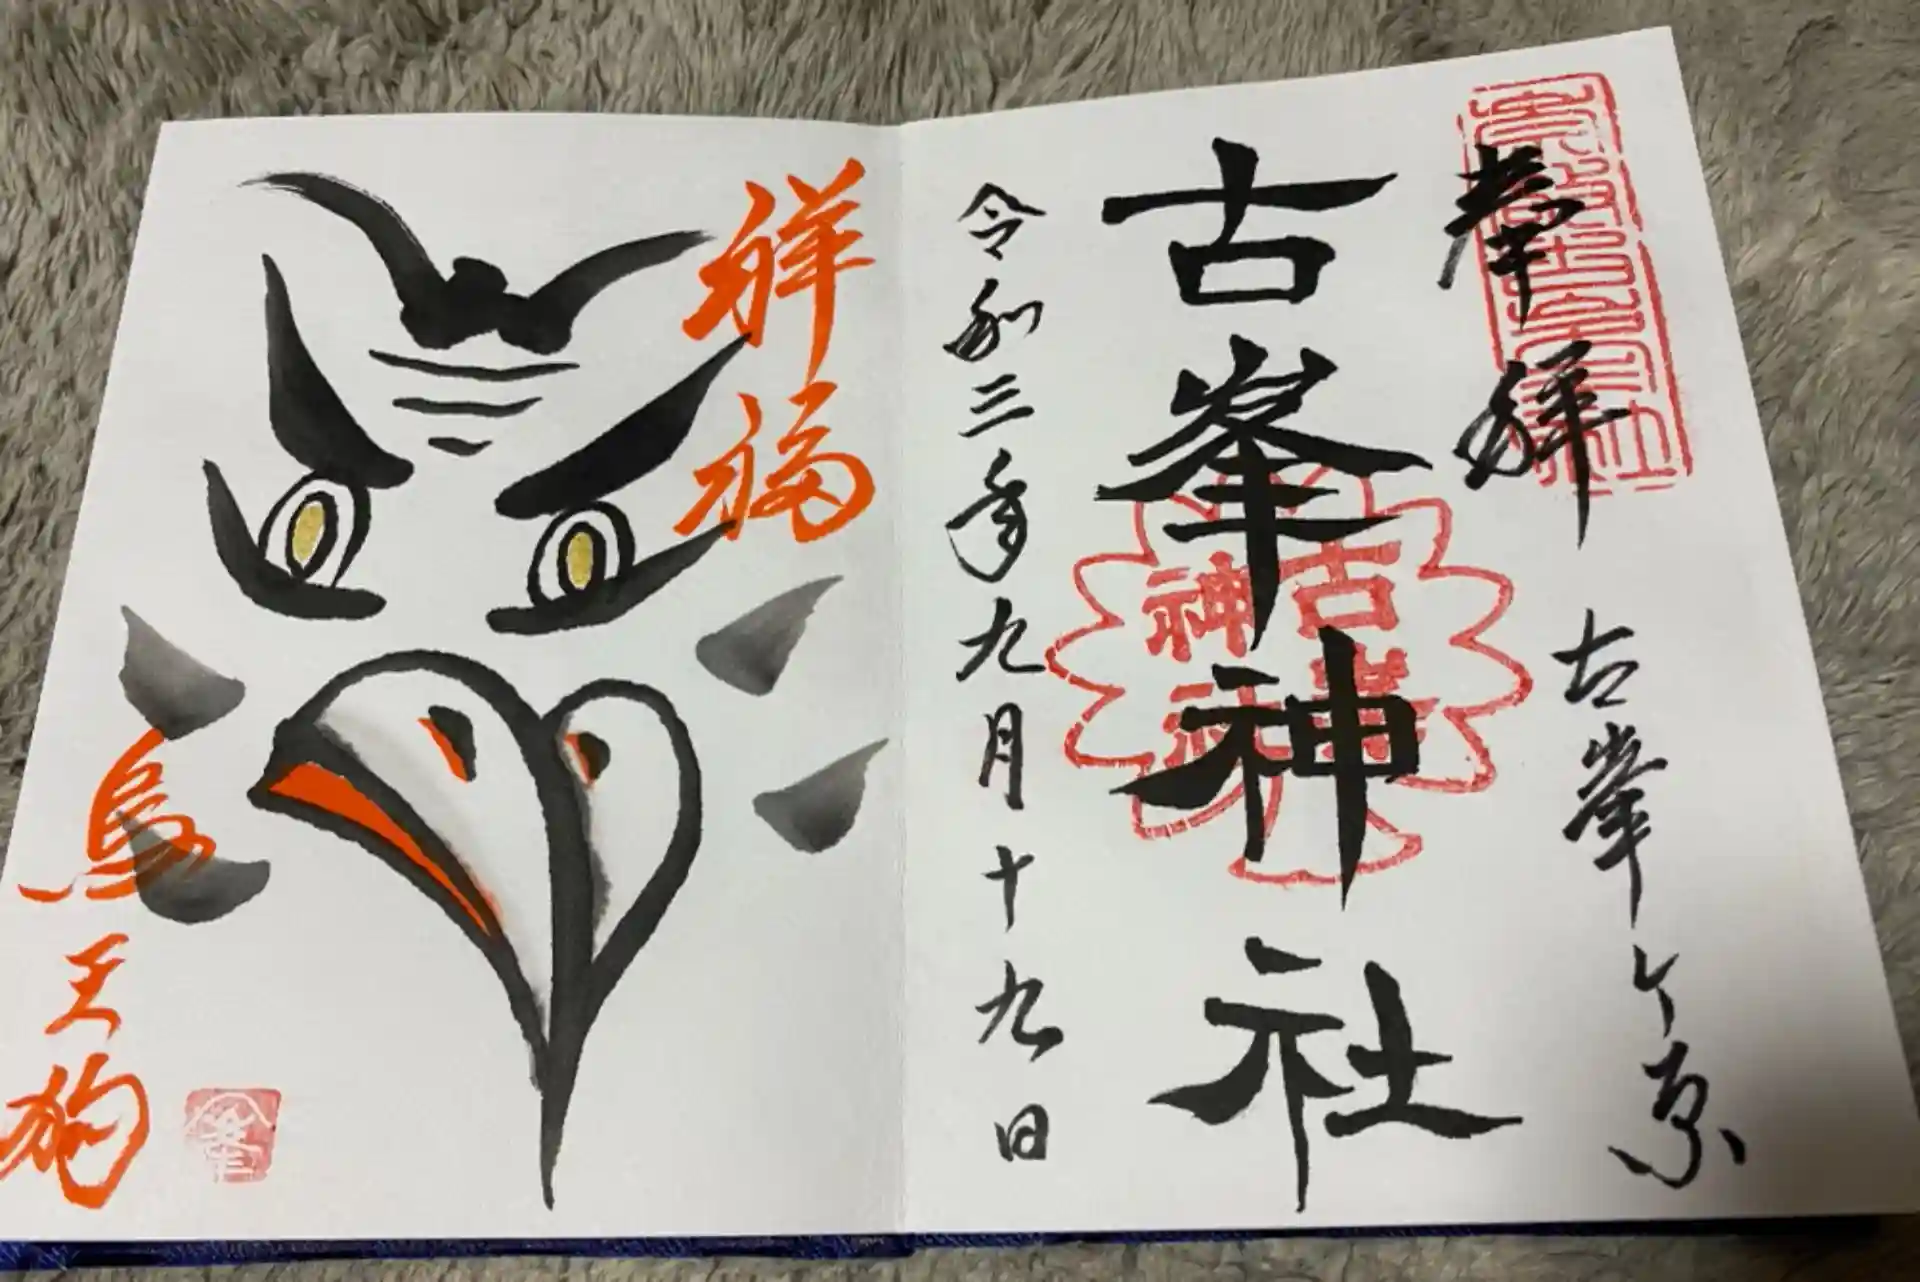 奉拝 古峯ヶ原
古峯神社
古峯神社
令和三年九月十九日
祥福
烏天狗